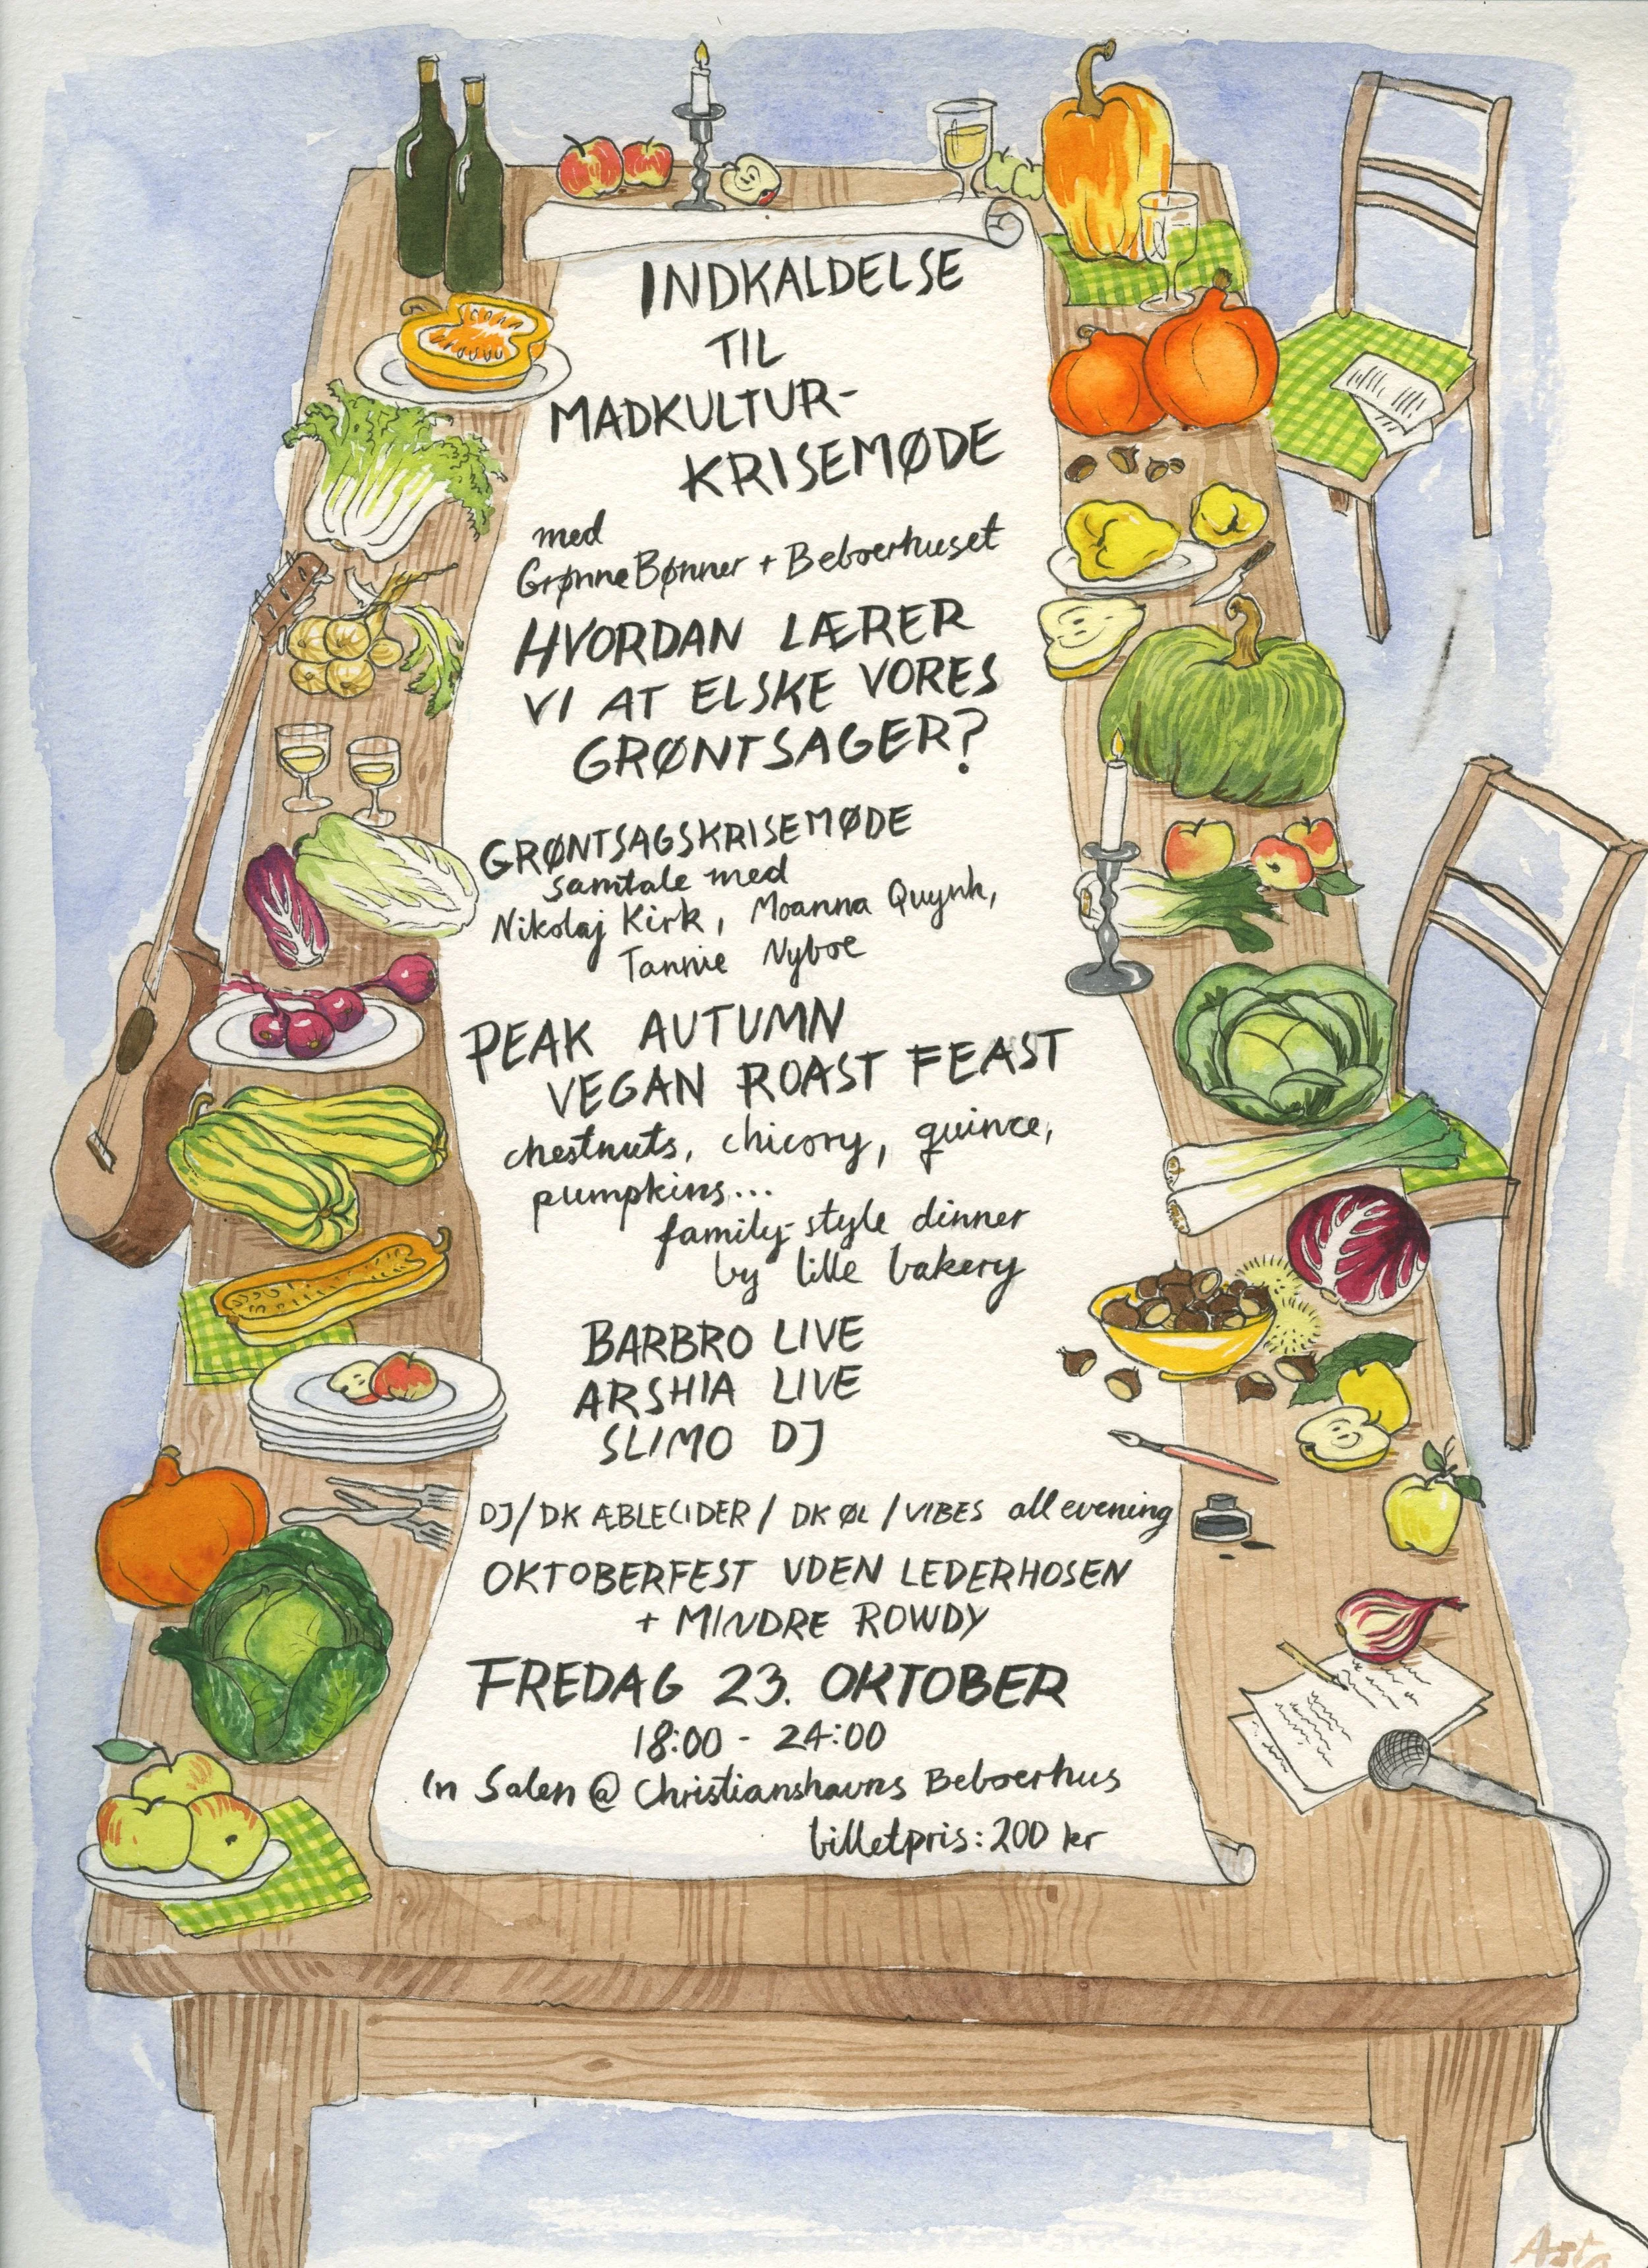 INDKALDELSE
TIL
MADKULTUR-
KRISEMØDE
med
Grønne Bønner + Beboerhuset
HVORDAN LÆRER
VI AT ELSKE VORES
GRØNTSAGER?
GRØNTSAGSKRISEMØDE
samtale med
Nikolaj Kirk, Moanna Quynh,
Tannie Nyboe
PEAK AUTUMN
VEGAN ROAST FEAST
chestnuts, chicory, quince,
pumpkins...
family-style dinner
by lille bakery
BARBRO LIVE
ARSHIA LIVE
SLIMO DJ
DJ/DK ÆBLECIDER / DK ØL / VIBES all evening
OKTOBERFEST UDEN LEDERHOSEN
+ MINDRE ROWDY
FREDAG 23. OKTOBER
18:00 - 24:00
In Salen @ Christianshavns Beboerhus
billetpris: 200 kr